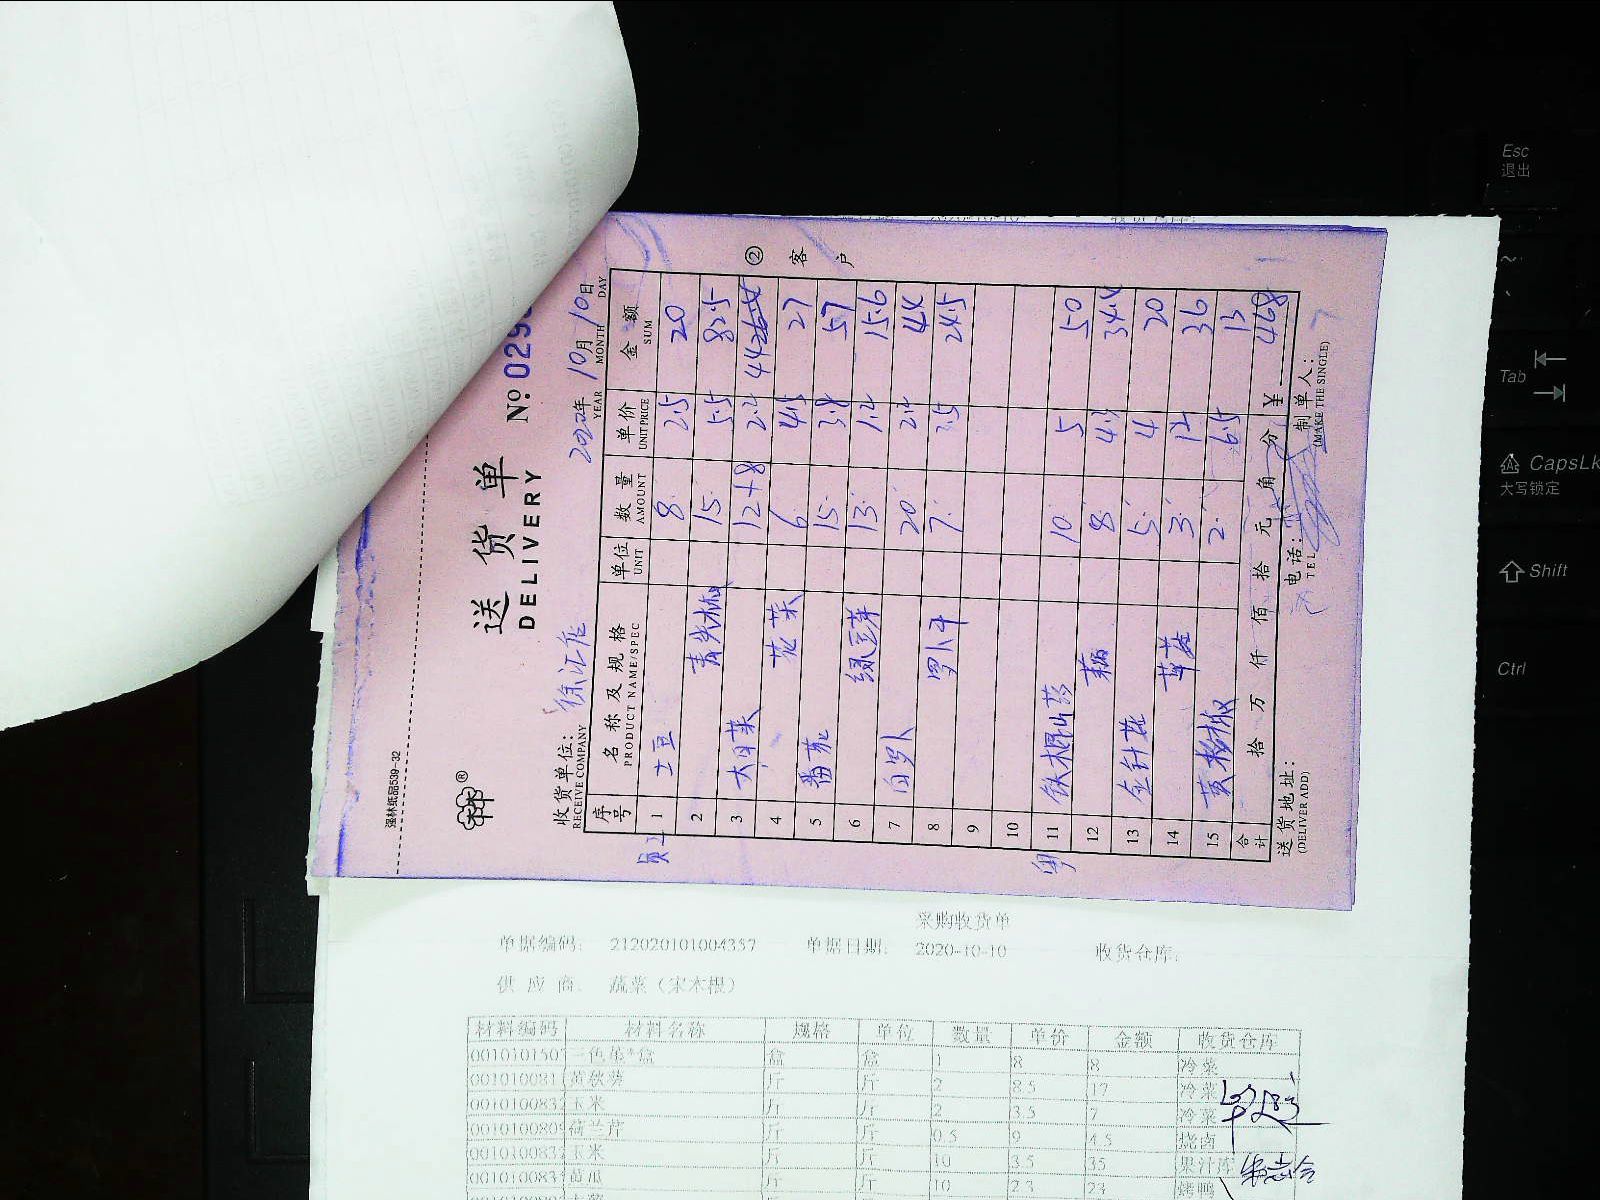 强林纸品539-32
送货单
DELIVERY
No. 029
收货单位: 徐汇店
RECEIVE COMPANY
2020年 10月 10日
YEAR MONTH DAY
② 客户
序号 名称及规格 单位 数量 单价 金额
PRODUCT NAME/SPEC UNIT AMOUNT UNIT PRICE SUM
员工
1 土豆 8 2.5 20
2 青尖椒 15 5.5 82.5
3 大白菜 12+8 2.2 44
4 花菜 6 4.5 27
5 番茄 15 3.8 57
6 绿豆芽 13 1.2 15.6
7 白萝卜 20 2.2 44
8 罗卜干 7 3.5 24.5
9
10
粤
11 铁棍山药 10 5 50
12 藕 8 4.3 34.4
13 金针菇 5 4 20
14 草菇 3 12 36
15 黄彩椒 2 6.5 13
合计 拾 万 仟 佰 拾 元 角 分 ¥ 468
送货地址: 电话: 制单人:
(DELIVER ADD) TEL (MAKE THE SINGLE)
采购收货单
单据编码: 212020101004337 单据日期: 2020-10-10 收货仓库:
供应商: 蔬菜（宋木根）
材料编码 材料名称 规格 单位 数量 单价 金额 收货仓库
001010150 三色堇*盒 盒 盒 1 8 8 冷菜
001010081 黄秋葵 斤 斤 2 8.5 17 冷菜
001010083 玉米 斤 斤 2 3.5 7 冷菜
001010080 荷兰芹 斤 斤 0.5 9 4.5 烧卤
001010083 玉米 斤 斤 10 3.5 35 果汁库
001010083 黄瓜 斤 斤 10 2.3 23 烤鸭
Esc
退出
~
Tab
CapsLk
大写锁定
Shift
Ctrl